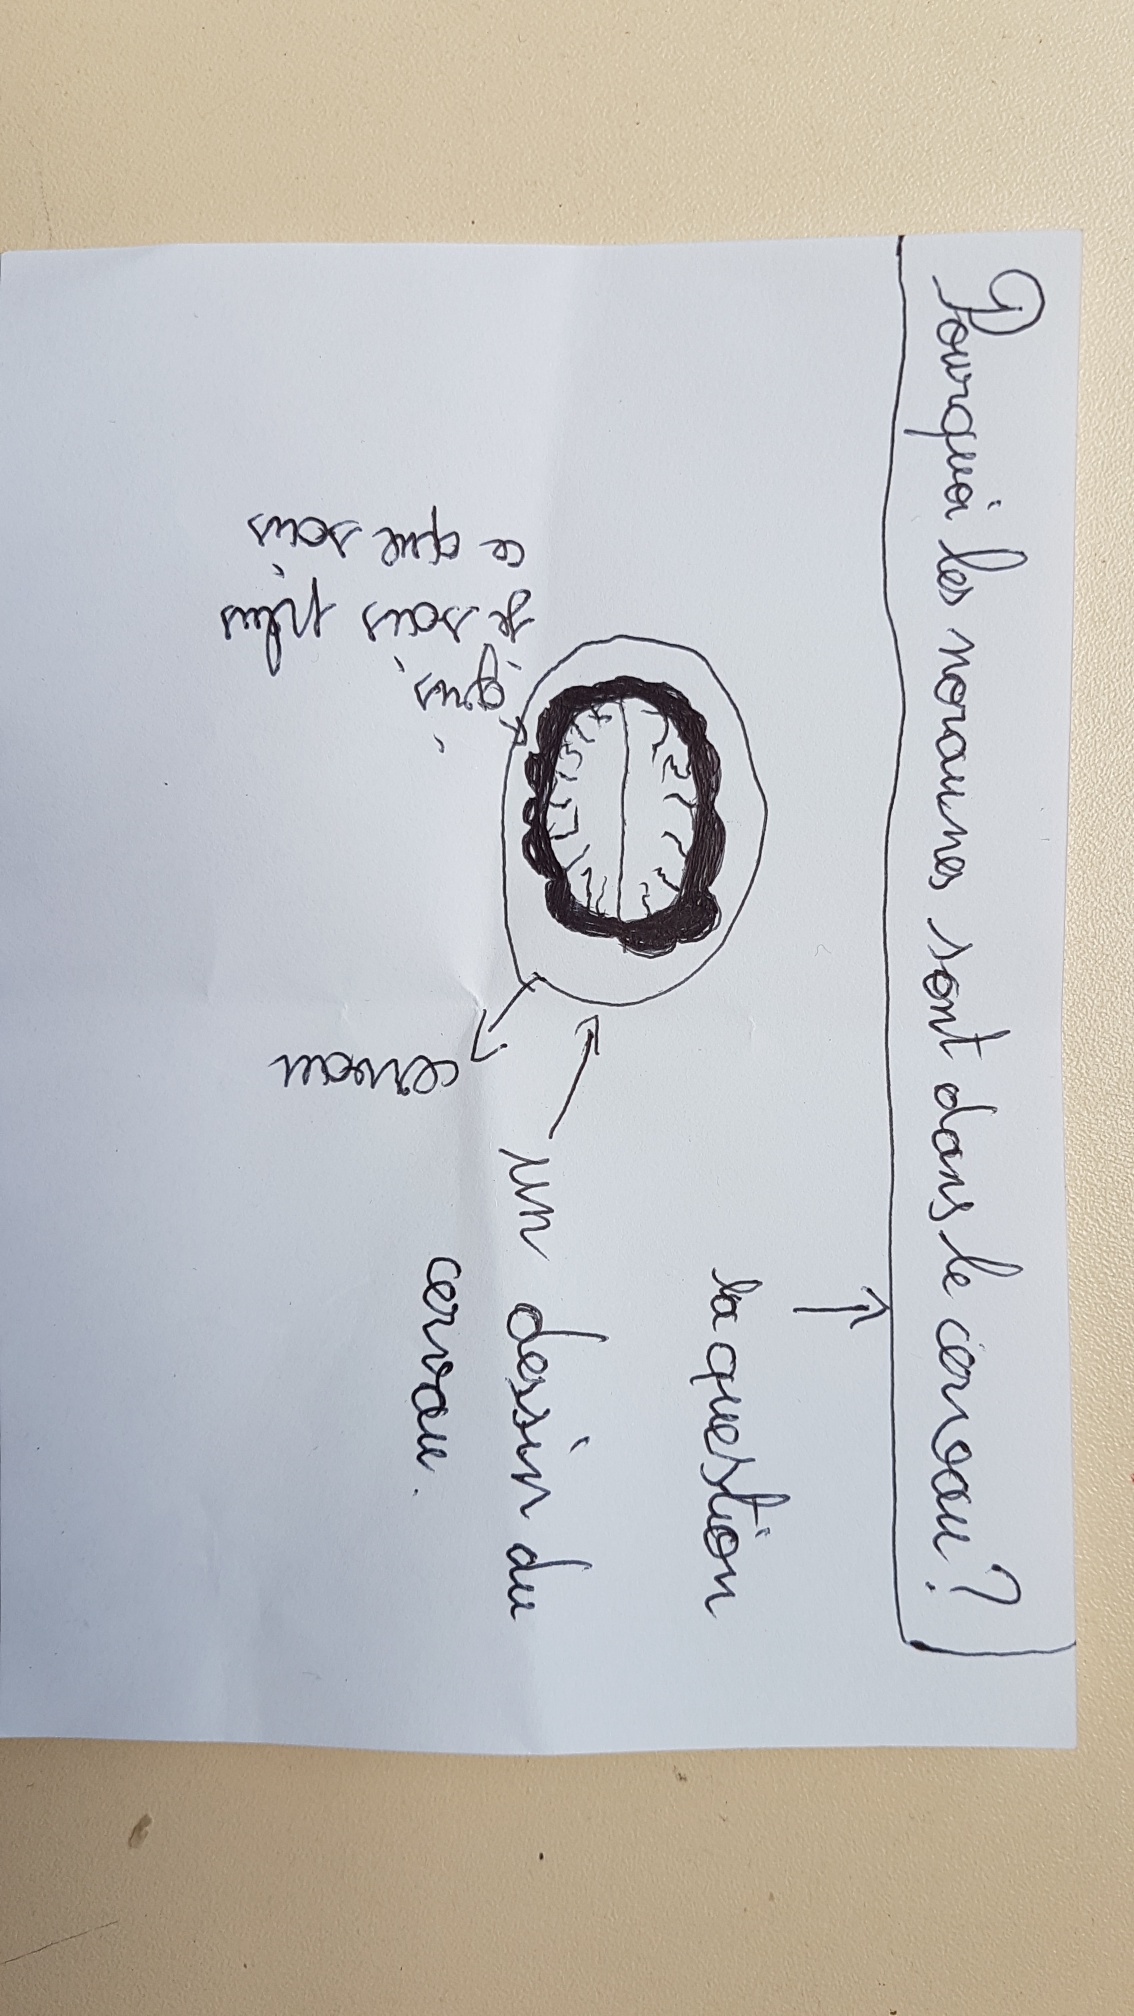 Pourquoi les noraunes sont dans le cervau?
la question
un dessin du
cervau.
cervau
gris,
je sais plus
ce que sais